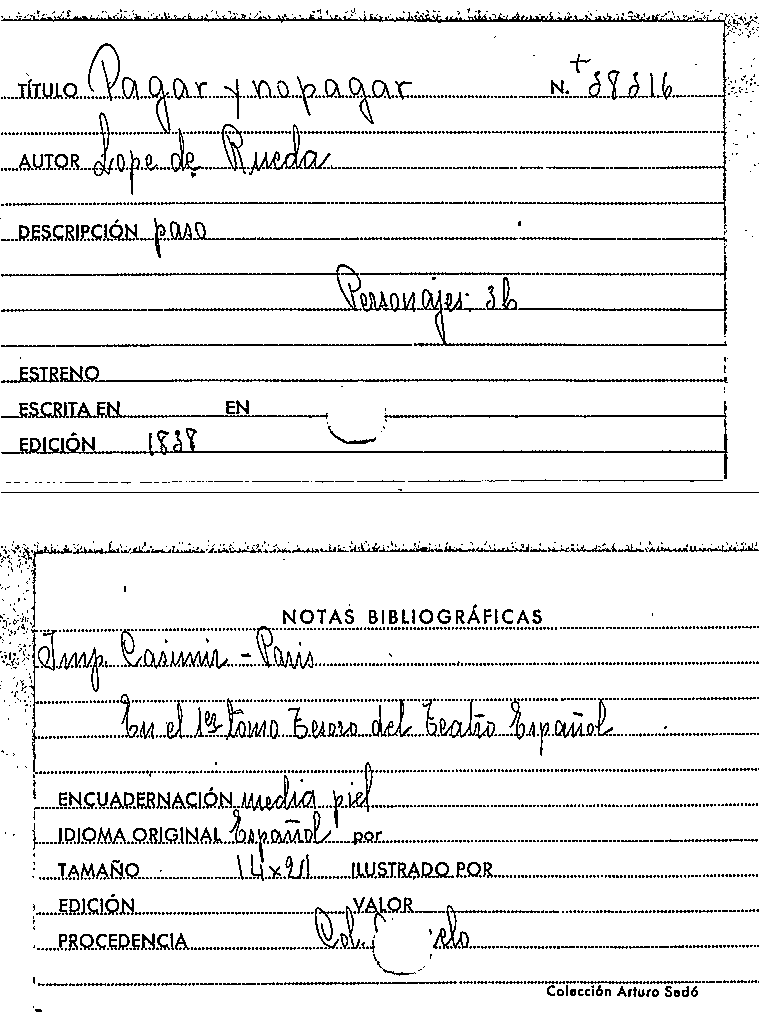 TÍTULO Pagar y no pagar N. + 38316
AUTOR Lope de Rueda
DESCRIPCIÓN paso
Personajes: 3h
ESTRENO
ESCRITA EN EN
EDICIÓN 1838
NOTAS BIBLIOGRÁFICAS
Imp. Casimir - Paris
En el 1er tomo Tesoro del Teatro Español
ENCUADERNACIÓN media piel
IDIOMA ORIGINAL Español por
TAMAÑO 14x21 ILUSTRADO POR
EDICIÓN VALOR
PROCEDENCIA Col.
Colección Arturo Sedó